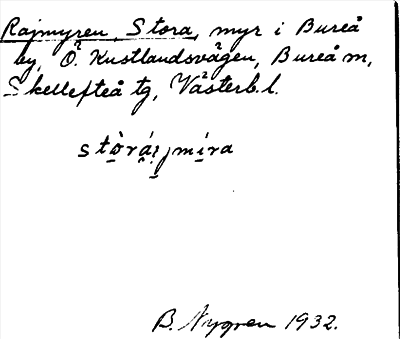 Rajmyren, Stora, myr i Bureå
by, Ö. Kustlandsvägen, Bureå m,
Skellefteå tg, Västerb. l.
B. Nygren 1932.